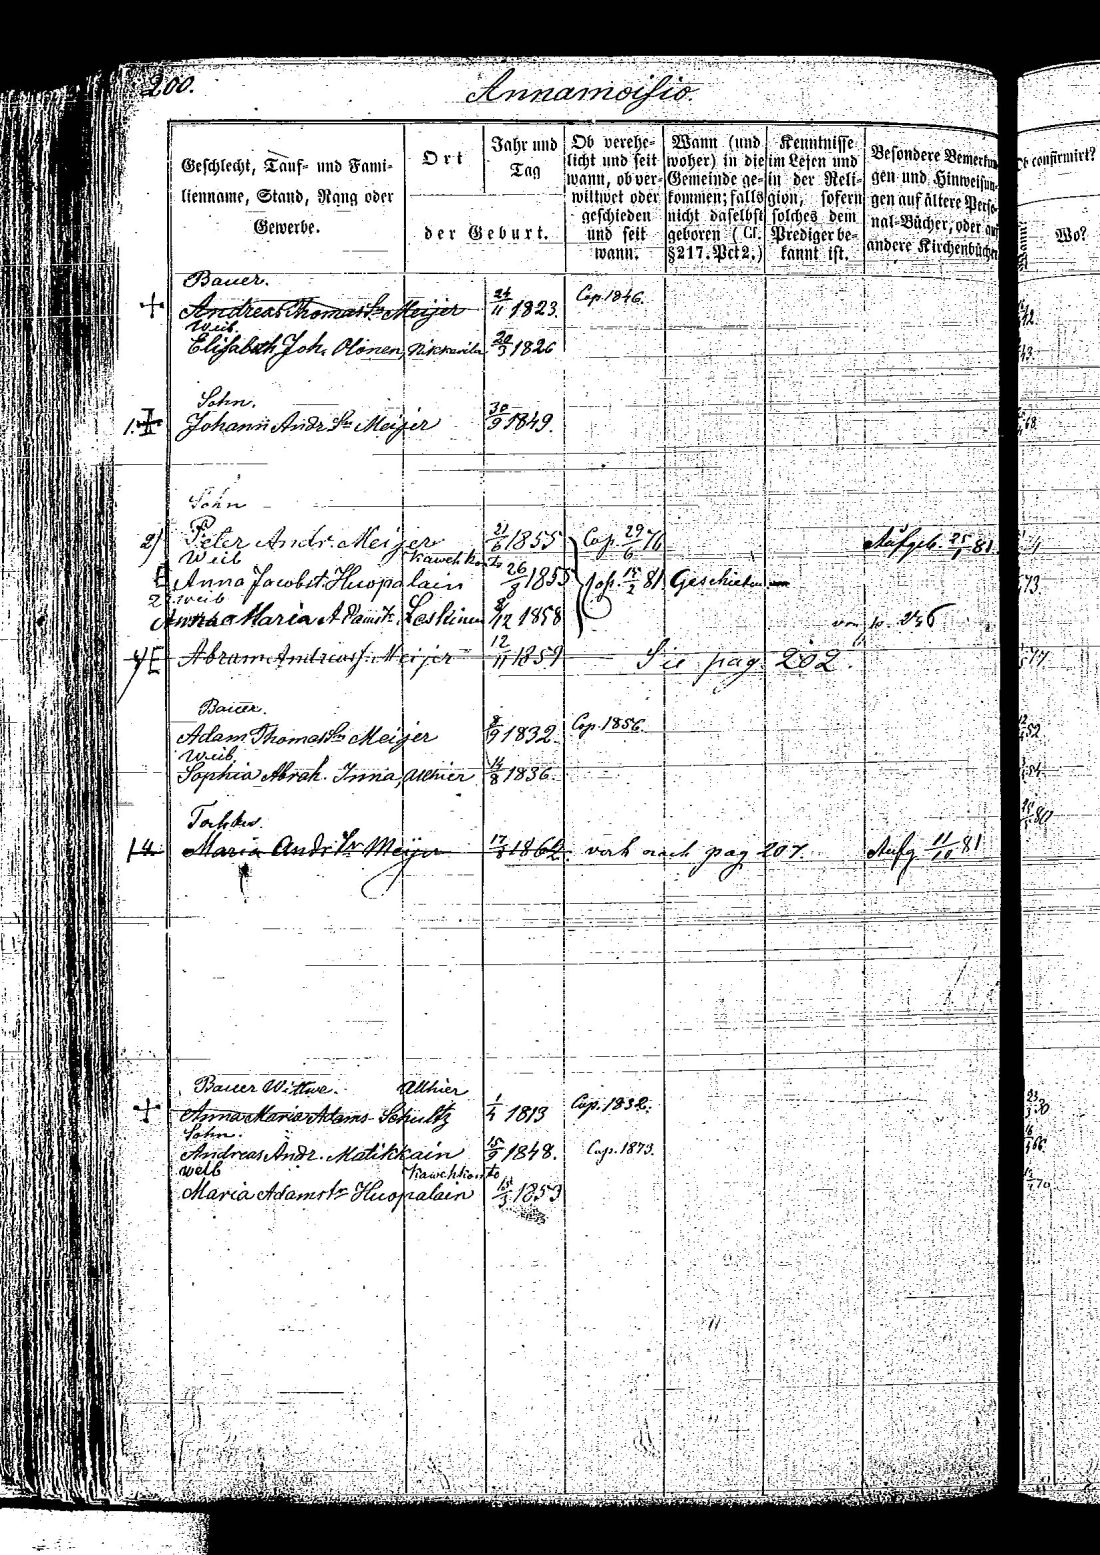 200.
Annamoisio.
Geschlecht, Tauf- und Fami-
lienname, Stand, Rang oder
Gewerbe.
Ort
Jahr und
Tag
der Geburt.
Ob verehe-
licht und seit
wann, ob ver-
wittwet oder
geschieden
und seit
wann.
Wann (und
woher) in die
Gemeinde ge-
kommen; falls
nicht daselbst
geboren (Cf.
§217. Pct 2.)
Kenntnisse
im Lesen und
in der Reli-
gion, sofern
solches dem
Prediger be-
kannt ist.
Besondere Bemerkun-
gen und Hinweisun-
gen auf ältere Perso-
nal-Bücher, oder auf
andere Kirchenbücher
confirmirt?
Wo?
Bauer.
Andreas Thomas Sn Meijer 24/11 1823. Cop. 1846.
Weib.
Elisabeth Joh. Olönen, 20/3 1826
Sohn.
1. Johann Andr. Sn Meijer 30/9 1849.
Sohn
2) Peter Andr. Meijer 21/6 1855 Cop. 29/6 76 Aufgeb. 25/1 81.
Weib Kawehkonto
E Anna Jacobst. Huopalain 26/8 1855 Cop. 15/2 81. Geschieden
2. weib
Anna Maria Adamstr. Leskinen 8/12 1858 von p. 246
4 E Abram Andreas Meijer 12/11 1859 Sie pag 202.
Bauer.
Adam Thomas Sn Meijer 8/9 1832. Cop. 1856.
Weib.
Sophia Abrah. Inna, allhier 14/8 1836.
Tochter
1a. Maria Andr. Tr Meijer 17/8 1862. nach pag 207. Aufg. 11/10 81
Bauer Wittwe. Allhier
Anna Maria Adams Schultz 1/4 1813 Cop. 1832.
Sohn.
Andreas Andr. Matikkain 15/9 1848. Cop. 1873.
weib Kawehkonto
Maria Adamstr Huopalain 15/3 1853